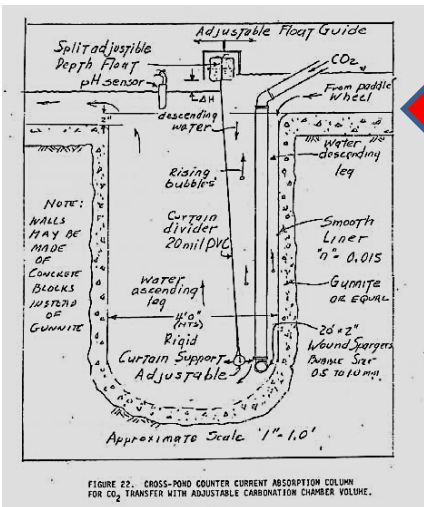 Adjustable Float Guide
Split adjistible
Depth Float
pH sensor
CO2
From paddle
Wheel
ΔH
2"
descending
water
Water
descending
leg
Rising
bubbles
NOTE:
WALLS
MAY BE
MADE
OF
CONCRETE
BLOCKS
INSTEAD
OF
GUNNITE
Curtain
divider
20 mil PVC
Smooth
Liner
"n" = 0.015
Water
ascending
leg
Gunnite
OR EQUAL
4'0"
(NTS)
Rigid
Curtain Support
Adjustable
20' x 2"
Wound Spargers
Bubble Size
0.5 to 1.0 mm
Approximate Scale "1"=1.0'
FIGURE 22. CROSS-POND COUNTER CURRENT ABSORPTION COLUMN
FOR CO2 TRANSFER WITH ADJUSTABLE CARBONATION CHAMBER VOLUME.